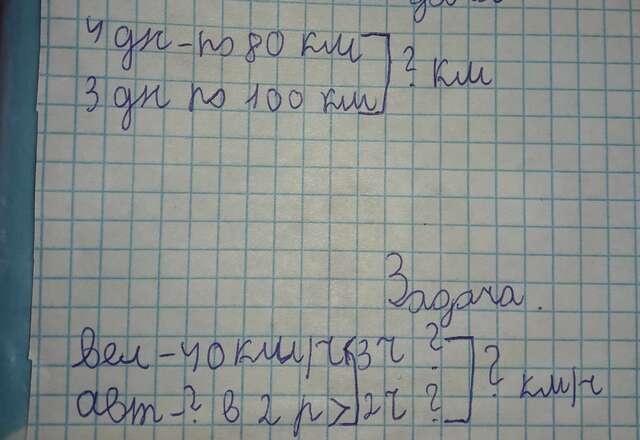 4 дн - по 80 км
3 дн по 100 км ? км
Задача.
вел - 40 км/ч 3ч ?
авт - ? в 2 р > 2ч ? ? км/ч